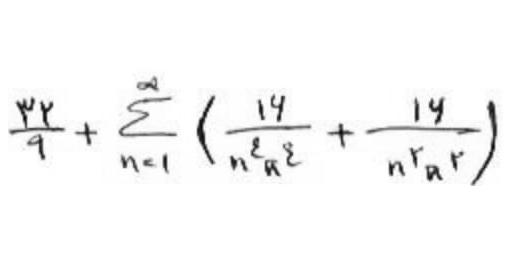 ۳۲/۹ + ∑_{n=1}^{∞} ( ۱۶/(n^۴ π^۴) + ۱۶/(n^۲ π^۲) )